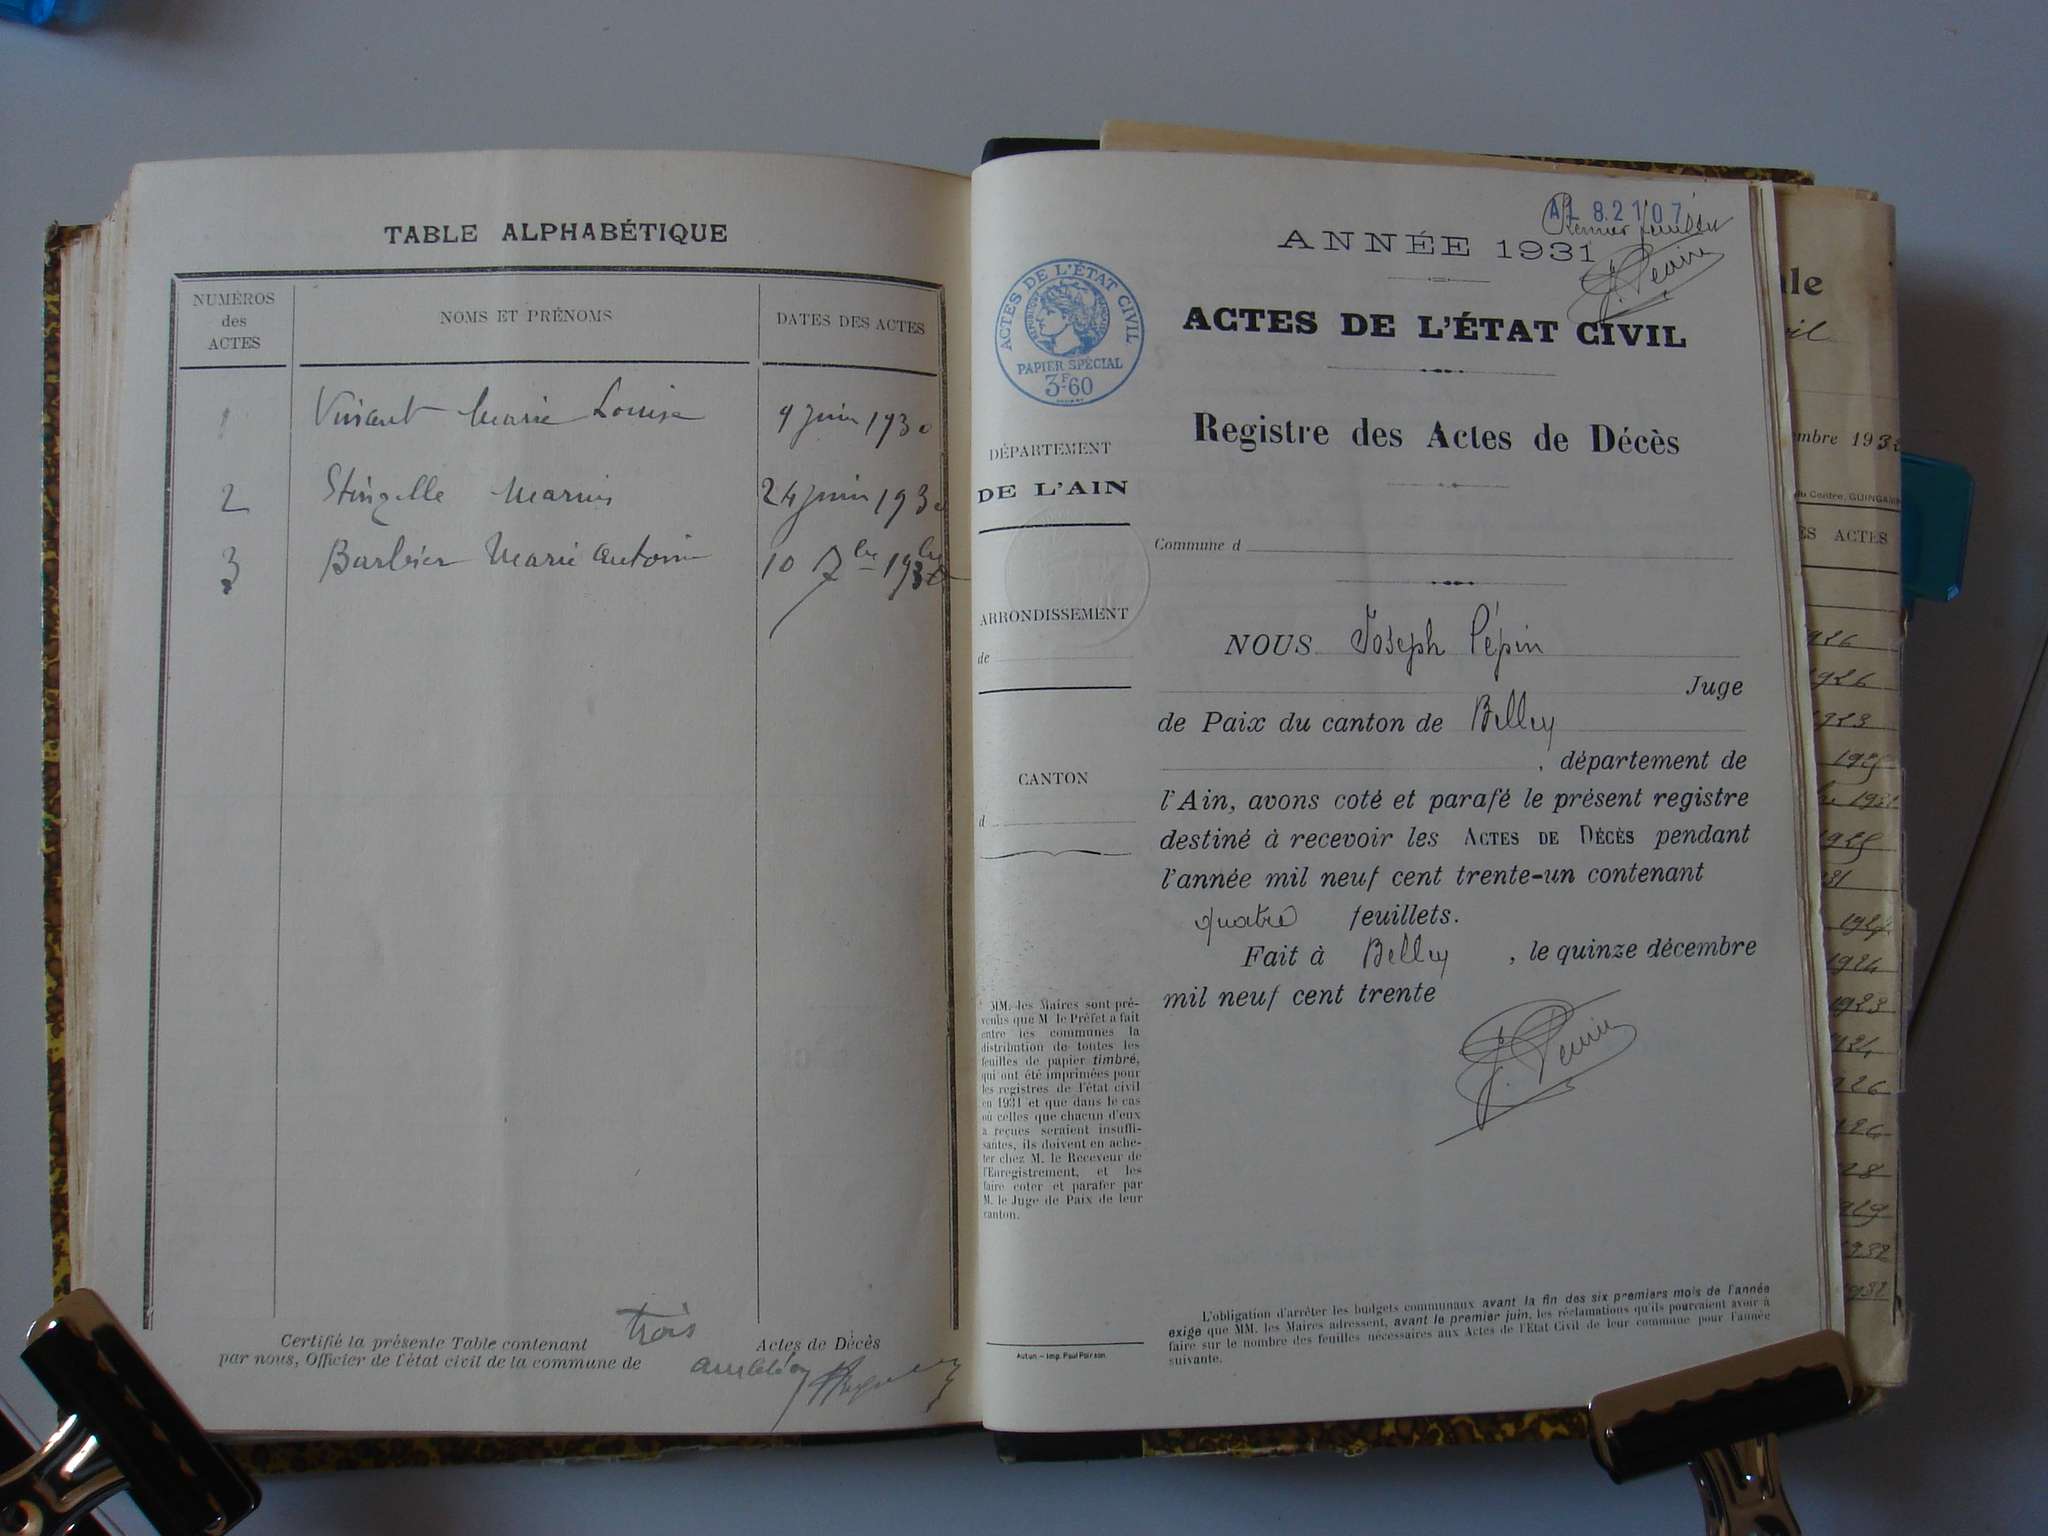 TABLE ALPHABÉTIQUE
NUMÉROS
des
ACTES
NOMS ET PRÉNOMS
DATES DES ACTES
1 Marie Louise 9 juin 1930
2 Stingelle Marius 24 juin 1930
3 Barbier Marie 10 7bre
Certifié la présente Table contenant trois Actes de Décès
par nous, Officier de l'état civil de la commune de
AL 82107
Premier
ANNÉE 1931
ACTES DE L'ÉTAT CIVIL
RÉPUBLIQUE FRANÇAISE
PAPIER SPÉCIAL
3F60
ACTES DE L'ÉTAT CIVIL
Registre des Actes de Décès
DÉPARTEMENT
DE L'AIN
Commune d
ARRONDISSEMENT
de
CANTON
d
NOUS Joseph Pépin
Juge
de Paix du canton de Belley
, département de
l'Ain, avons coté et parafé le présent registre
destiné à recevoir les ACTES DE DÉCÈS pendant
l'année mil neuf cent trente-un contenant
quatre feuillets.
Fait à Belley , le quinze décembre
mil neuf cent trente
J. Pépin
MM. les Maires sont pré-
venus que M le Préfet a fait
entre les communes la
distribution de toutes les
feuilles de papier timbré,
qui ont été imprimées pour
les registres de l'état civil
en 1931 et que dans le cas
où celles que chacun d'eux
a reçues seraient insuffi-
santes, ils doivent en ache-
ter chez M. le Receveur de
l'Enregistrement, et les
faire coter et parafer par
M. le Juge de Paix de leur
canton.
Autun — Imp. Paul Poirson
L'obligation d'arrêter les budgets communaux avant la fin des six premiers mois de l'année
exige que MM. les Maires adressent, avant le premier juin, les réclamations qu'ils pourraient avoir à
faire sur le nombre des feuilles nécessaires aux Actes de l'Etat Civil de leur commune pour l'année
suivante.
ale
il
mbre 1932
du Centre, GUINGAMP
ES ACTES
1926
1926
1923
1925
1931
1925
31
1924
1924
1923
1924
26
26
28
1919
1932
1932